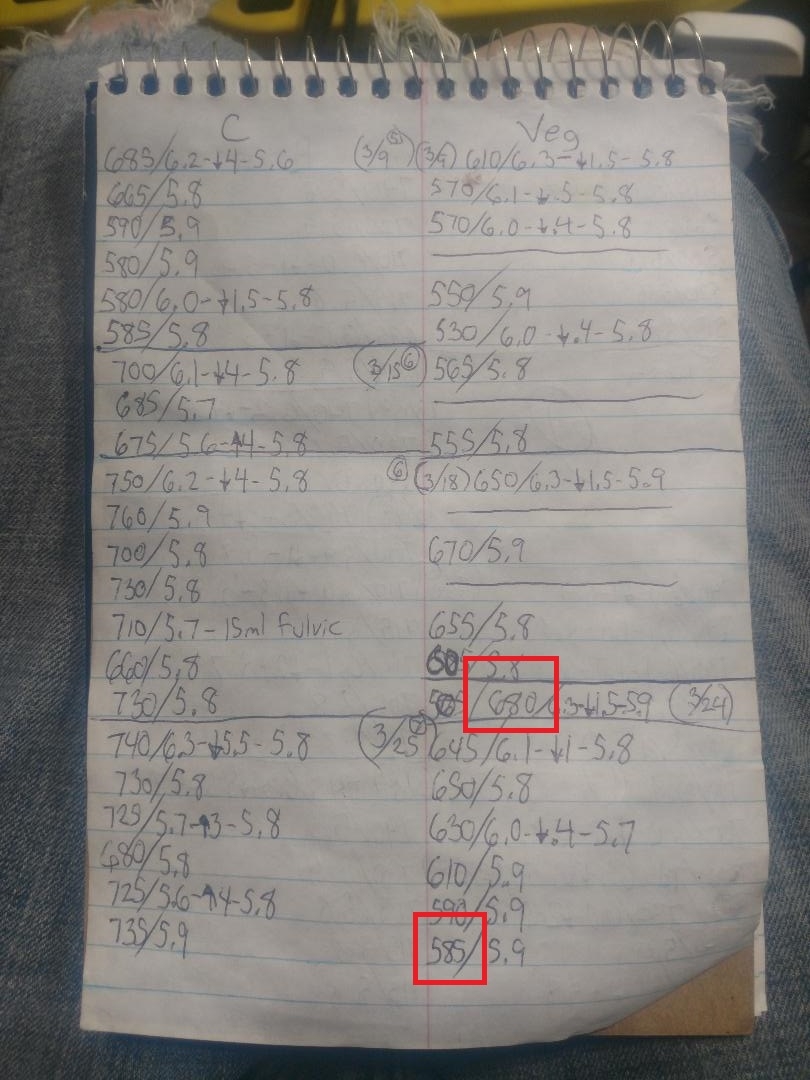 C
685/6.2-↓4-5.6 (3/9 ⑤)
665/5.8
590/5.9
580/5.9
580/6.0-↓1.5-5.8
585/5.8
700/6.1-↓4-5.8 (3/15 ⑥)
685/5.7
675/5.6-↑4-5.8
750/6.2-↓4-5.8 ⑥
760/5.9
700/5.8
730/5.8
710/5.7-15ml Fulvic
660/5.8
730/5.8
740/6.3-↓5.5-5.8 (3/25)
730/5.8
725/5.7-↑3-5.8
680/5.8
725/5.6-↑4-5.8
735/5.9
Veg
(3/9) 610/6.3-↓1.5-5.8
570/6.1-↓.5-5.8
570/6.0-↓.4-5.8
550/5.9
530/6.0-↓.4-5.8
565/5.8
555/5.8
(3/18) 650/6.3-↓1.5-5.9
670/5.9
655/5.8
5.8
/680/6.3-↓1.5-5.9 (3/24)
645/6.1-↓1-5.8
650/5.8
630/6.0-↓.4-5.7
610/5.9
590/5.9
585/5.9